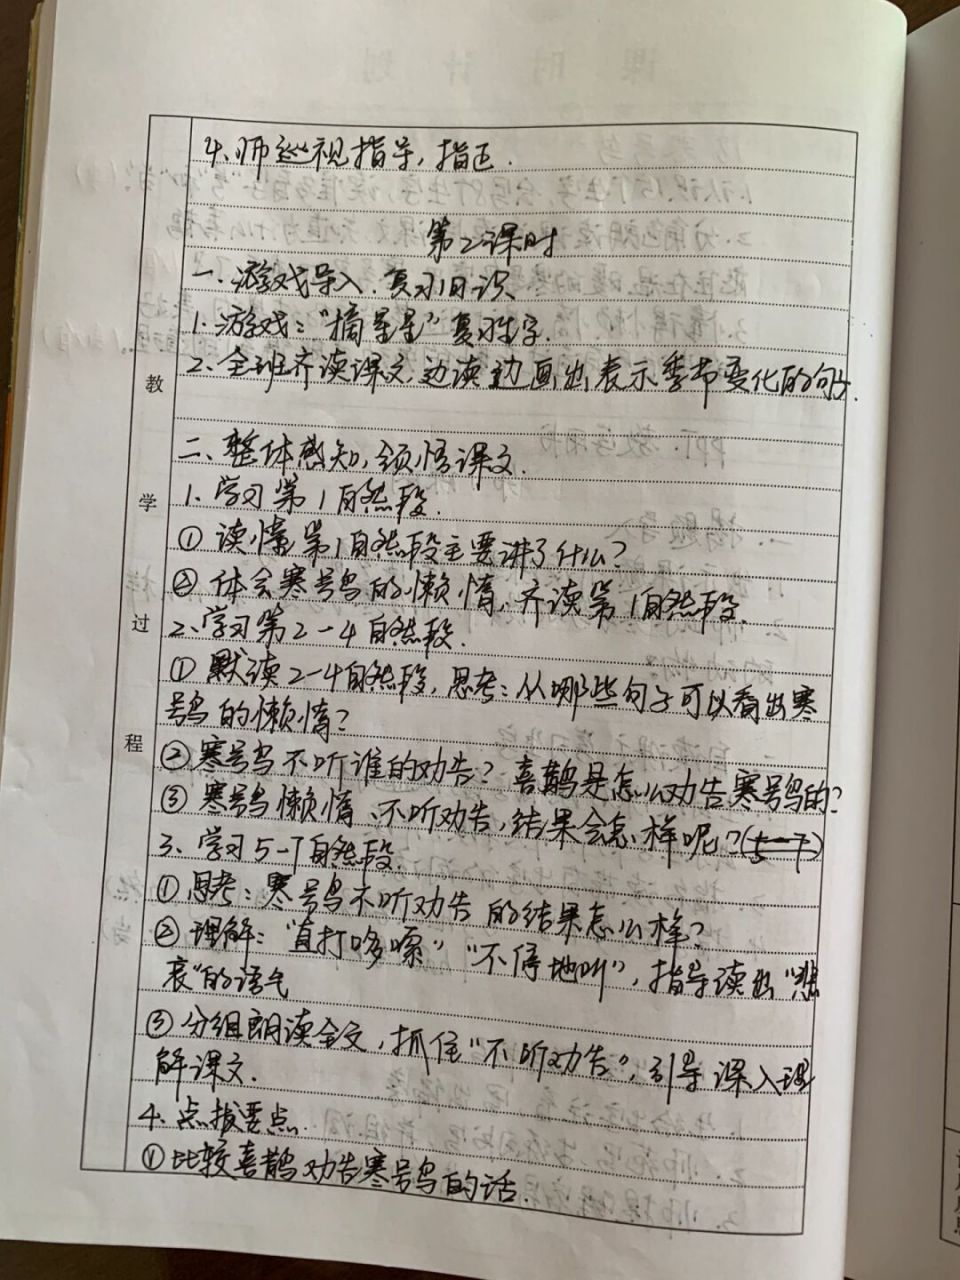 4、师巡视指导,指正.
第2课时
一.游戏导入.复习旧识
1.游戏:"摘星星"复习生字.
2、全班齐读课文,边读边画出表示季节变化的句子.
二、整体感知,领悟课文.
1、学习第1自然段.
① 读懂第1自然段主要讲了什么?
② 体会寒号鸟的懒惰,齐读第1自然段.
2、学习第2-4自然段.
① 默读2-4自然段,思考:从哪些句子可以看出寒
号鸟的懒惰?
② 寒号鸟不听谁的劝告?喜鹊是怎么劝告寒号鸟的?
③ 寒号鸟懒惰、不听劝告,结果会怎样呢?
3、学习5-7自然段.
① 思考:寒号鸟不听劝告的结果怎么样?
② 理解:"直打哆嗦""不停地叫",指导读出"悲
哀"的语气
③ 分组朗读全文,抓住"不听劝告",引导深入理
解课文.
4、点拨要点.
① 比较喜鹊劝告寒号鸟的话.
教
学
过
程